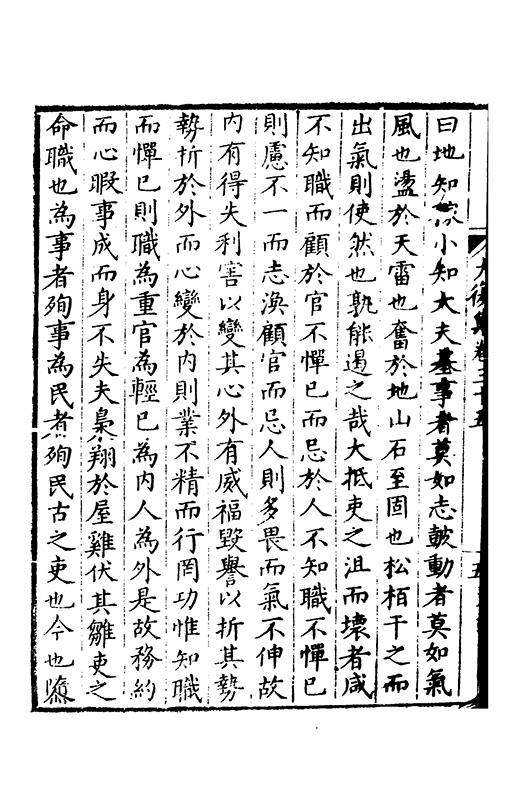 曰地知縣小知大夫基事者莫如志皷動者莫如氣
風也盪於天雷也奮於地山石至固也松栢干之而
出氣則使然也孰能遏之哉大抵吏之沮而壞者咸
不知職而顧於官不憚已而忌於人不知職不憚已
則慮不一而志渙顧官而忌人則多畏而氣不伸故
內有得失利害以變其心外有威福毀譽以折其勢
勢折於外而心變於內則業不精而行罔功惟知職
而憚已則職為重官為輕已為內人為外是故務約
而心暇事成而身不失夫梟翔於屋雞伏其雛吏之
命職也為事者殉事為民者殉民古之吏也今也隳
卷二十五
五